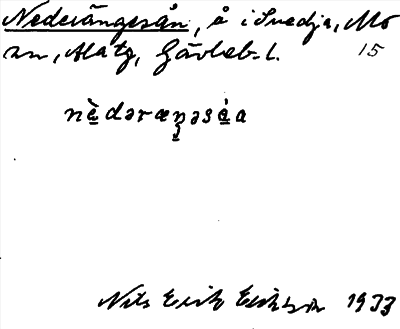 Nederängesån, å i Svedja, Mo
an, Alatg, Gävleb. l. 15
nèdəræŋəsåa
Nils Erik Eriksson 1933